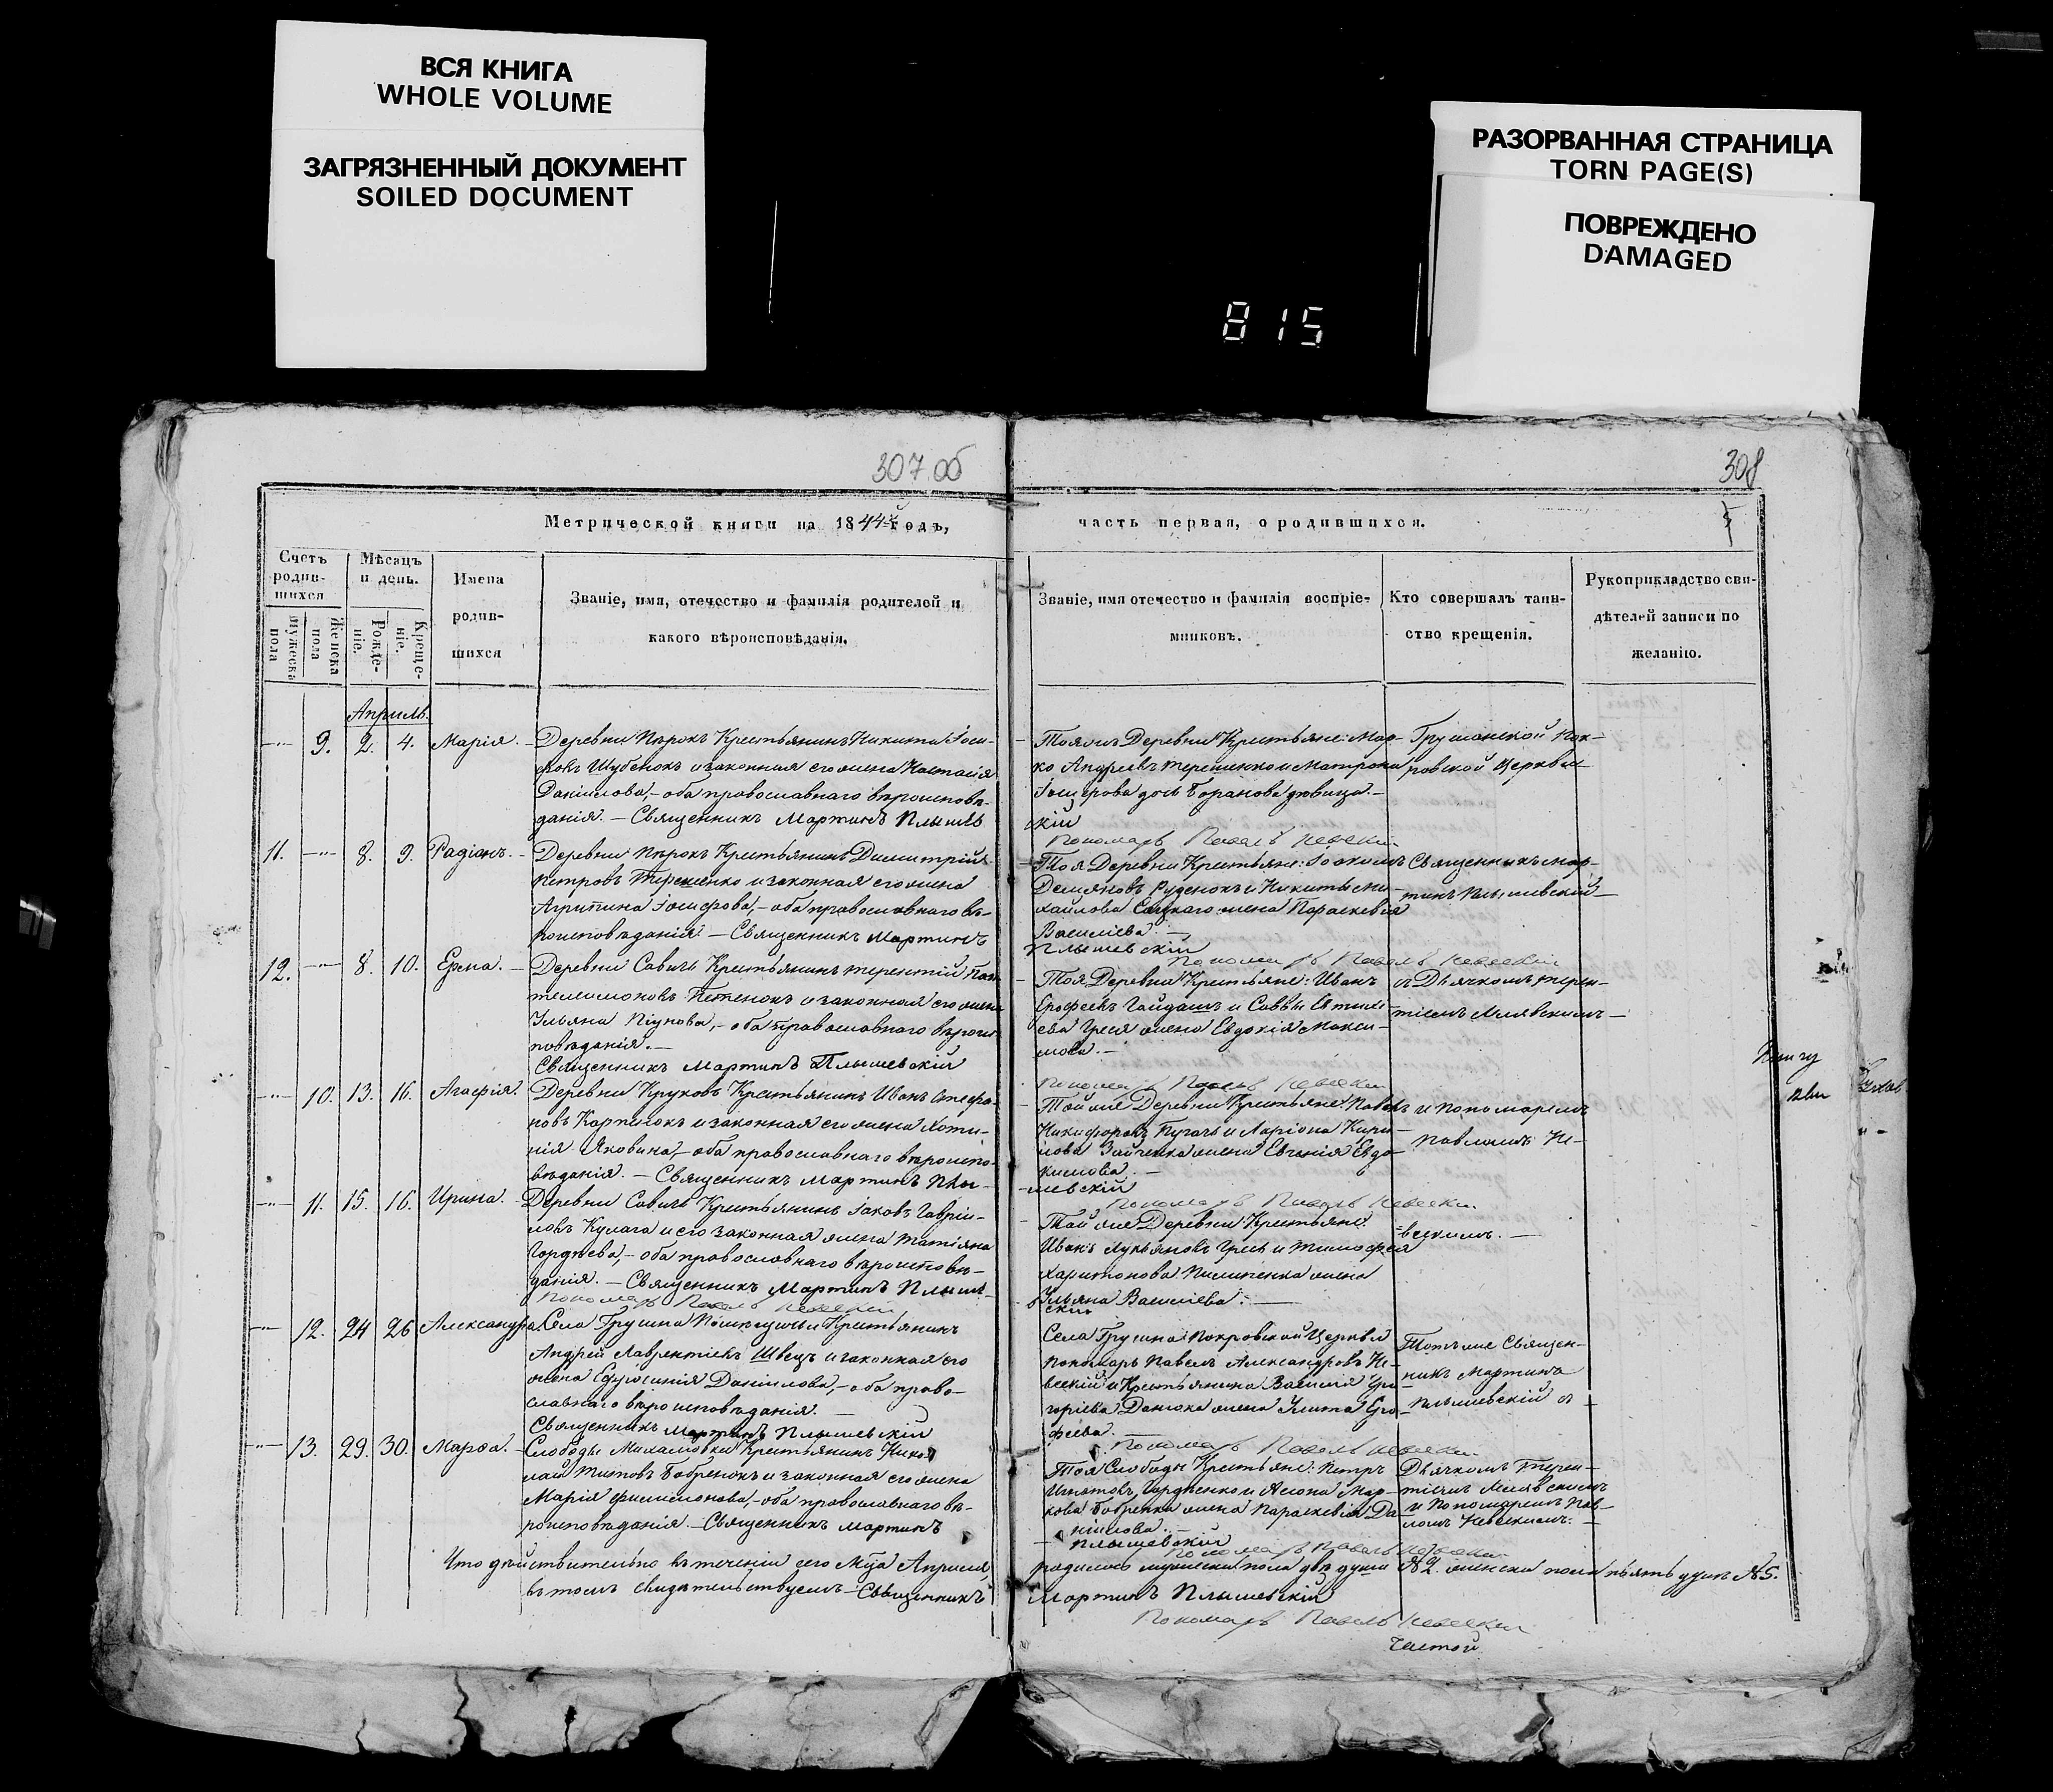 ВСЯ КНИГА
WHOLE VOLUME
ЗАГРЯЗНЕННЫЙ ДОКУМЕНТ
SOILED DOCUMENT
РАЗОРВАННАЯ СТРАНИЦА
TORN PAGE(S)
ПОВРЕЖДЕНО
DAMAGED
815
307 об
308
Метрической книги на 1844й годъ,
часть первая, о родившихся.
Счетъ родив-
шихся
Мужеска пола
Женска пола
Мѣсяцъ и день.
Рожде-
ніе.
Креще-
ніе.
Имена
родив-
шихся
Званіе, имя, отечество и фамилія родителей и
какого вѣроисповѣданія.
Званіе, имя отечество и фамилія воспріе-
мниковъ.
Кто совершалъ таин-
ство крещенія.
Рукоприкладство сви-
дѣтелей записи по
желанію.
Апрель.
9. 2. 4. Марія.
Деревни Пѣрокъ Крестьянинъ Никита Іоси-
фовъ Шубенокъ и законная его жена Настасія
Даніилова,- оба православнаго вѣроисповѣ-
данія. - Священникъ Мартинъ Плышев
Тояжъ Деревни Крестьяне: Мар-
ко Андреевъ Терешенко и Матрона
Іосифова дочь Баранова девица.-
скій
Пономарь Павелъ Невскій
Грушанской Пок-
ровской Церкви
11. 8. 9. Радіонъ.
Деревни Пѣрокъ Крестьянинъ Димитрій
Петровъ Терешенко и законная его жена
Агрипина Іосифова,- оба православнаго вѣ-
роисповѣданія - Священникъ Мартинъ
Тоя Деревни Крестьяне: Іоакимъ
Демяновъ Руденокъ и Никиты Ми-
хайлова жена Параскевія
Василіева.-
Плышевскій
Пономарь Павелъ Невскій
Священникъ Мар-
тинъ Плышевскій
12. 8. 10. Ерема.
Деревни Савичь Крестьянинъ Терентій Пан-
телимоновъ и законная его жена
Ульяна,- оба православнаго вѣроис-
повѣданія.-
Священникъ Мартинъ Плышевскій
Тоя Деревни Крестьяне: Иванъ
Ерофеевъ Гайдашъ и Саввы
жена Евдокія Макси-
мова.-
Пономарь Павелъ Невскій
съ Дьячкомъ Терен-
тіемъ
10. 13. 16. Агафія.
Деревни Круковъ Крестьянинъ Иванъ Стефа-
новъ и законная его жена Хоти-
нія Яковина,- оба православнаго вѣроиспо-
вѣданія. - Священникъ Мартинъ Плы-
Той же Деревни Крестьяне: Павелъ
Никифоровъ Пугачъ и Ларіона Кири-
лова Зайченка жена Евгенія Евдо-
кимова.-
-шевскій
Пономарь Павелъ Невскій
и Пономаремъ
Павломъ Не-
11. 15. 16. Ирина.
Деревни Савичь Крестьянинъ Іаковъ Гавріи-
ловъ Кулага и его законная жена Татіана
Гордѣева,- оба православнаго вѣроисповѣ-
данія. - Священникъ Мартинъ Плышев
Пономарь Павелъ Невскій
Той же Деревни Крестьяне:
Иванъ Лукьяновъ и Тимофея
Харитонова Пилипенка жена
Ульяна Василіева.-
скій
=вскимъ.-
12. 24 26 Александра.
Села Грушна Крестьянинъ
Андрей Лаврентіевъ Швецъ и законная его
жена Ефросинія Даніилова,- оба право-
славнаго вѣроисповѣданія.-
Священникъ Мартинъ Плышевскій
Села Грушна Покровской Церкви
Пономарь Павелъ Александровъ Не-
вскій и Крестьянина Василія Гри-
горіева жена Улита Еро-
феева.-
Пономарь Павелъ Невскій
Тотъ же Священ-
никъ Мартинъ
Плышевскій съ
13. 29. 30. Марѳа.
Слободы Михаловки Крестьянинъ Нико-
лай Титовъ Бобренокъ и законная его жена
Марія Филимонова,- оба православнаго вѣ-
роисповѣданія. - Священникъ Мартинъ
Тоя Слободы Крестьяне: Петръ
Игнатовъ Гордѣенко и Мар-
кова Бобренка жена Параскевія Да-
ніилова.-
Плышевскій
Пономарь Павелъ Невскій
Дьячкомъ Терен-
тіемъ
и Пономаремъ Пав-
ломъ Невскимъ.-
Что дѣйствительно въ теченіи сего Мца Апреля
родилось мужеска пола две души №2. женска пола пять душъ №5.
въ томъ свидѣтельствуемъ - Священникъ
Мартинъ Плышевскій
Пономарь Павелъ Невскій